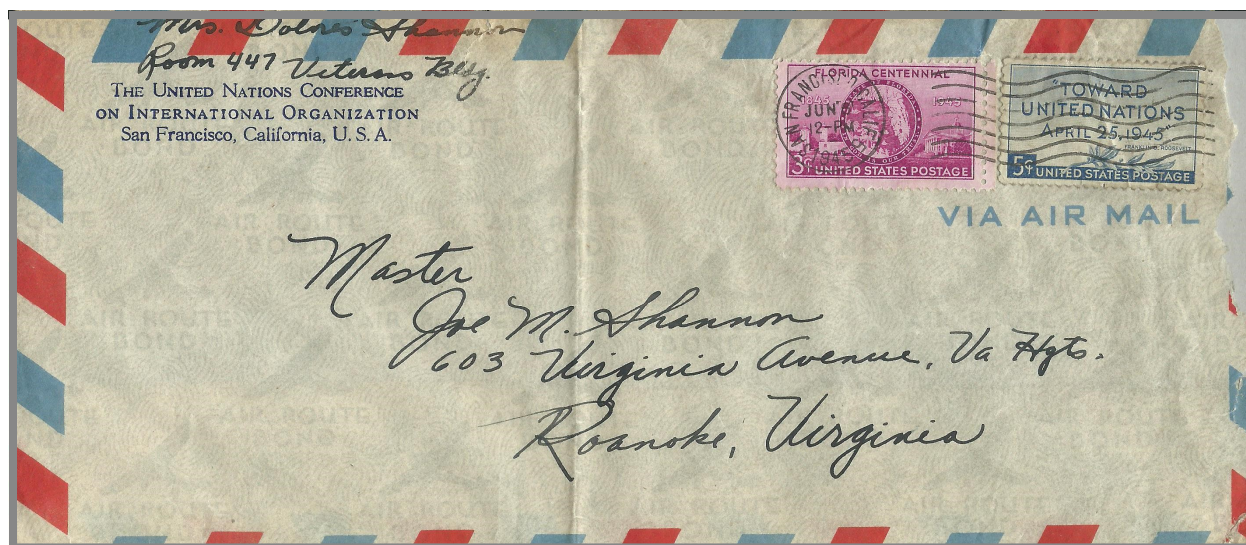 Mrs. Dolores Shannon
Room 447 Veterans Bldg.
THE UNITED NATIONS CONFERENCE
ON INTERNATIONAL ORGANIZATION
San Francisco, California, U. S. A.
FLORIDA CENTENNIAL
1845 1945
SAN FRANCISCO, CALIF.
JUN
12-PM
1945
3¢ UNITED STATES POSTAGE
"TOWARD
UNITED NATIONS
APRIL 25, 1945"
FRANKLIN D. ROOSEVELT
5¢ UNITED STATES POSTAGE
VIA AIR MAIL
Master
Joe M. Shannon
603 Virginia Avenue, Va Hgts.
Roanoke, Virginia
AIR ROUTE
BOND